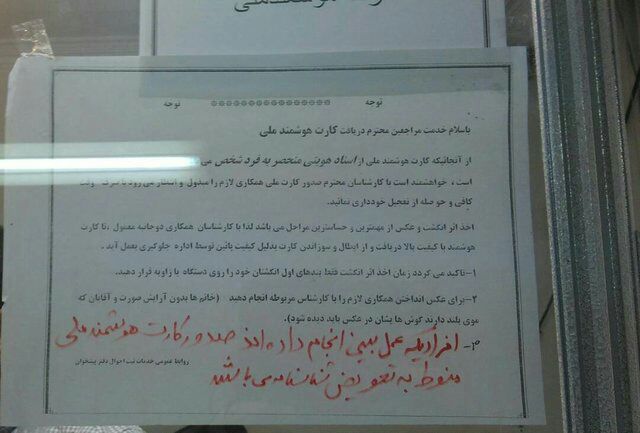 هوشمندملی
توجه **************** توجه
باسلام خدمت مراجعین محترم دریافت کارت هوشمند ملی
از آنجائیکه کارت هوشمند ملی از اسناد هویتی منحصر به فرد شخص می
است ، خواهشمند است با کارشناسان محترم صدور کارت ملی همکاری لازم را مبذول و انتظار می رود با صرف وقت
کافی و حوصله از تعجیل خودداری نمائید.
اخذ اثر انگشت و عکس از مهمترین و حساسترین مراحل می باشد لذا با کارشناسان همکاری دوجانبه معمول ،تا کارت
هوشمند با کیفیت بالا دریافت و از ابطال و سوزاندن کارت بدلیل کیفیت پائین توسط اداره جلوگیری بعمل آید .
۱-تاکید می گردد زمان اخذ اثر انگشت فقط بندهای اول انگشتان خود را روی دستگاه با زاویه قرار دهید.
۲-برای عکس انداختن همکاری لازم را با کارشناس مربوطه انجام دهید (خانم ها بدون آرایش صورت و آقایان که
موی بلند دارند گوش ها یشان در عکس باید دیده شود).
۳- افرادیکه عمل بینی انجام داده اند صدور کارت هوشمند ملی
روابط عمومی خدمات ثبت احوال دفتر پیشخوان
منوط به تعویض شناسنامه می باشد